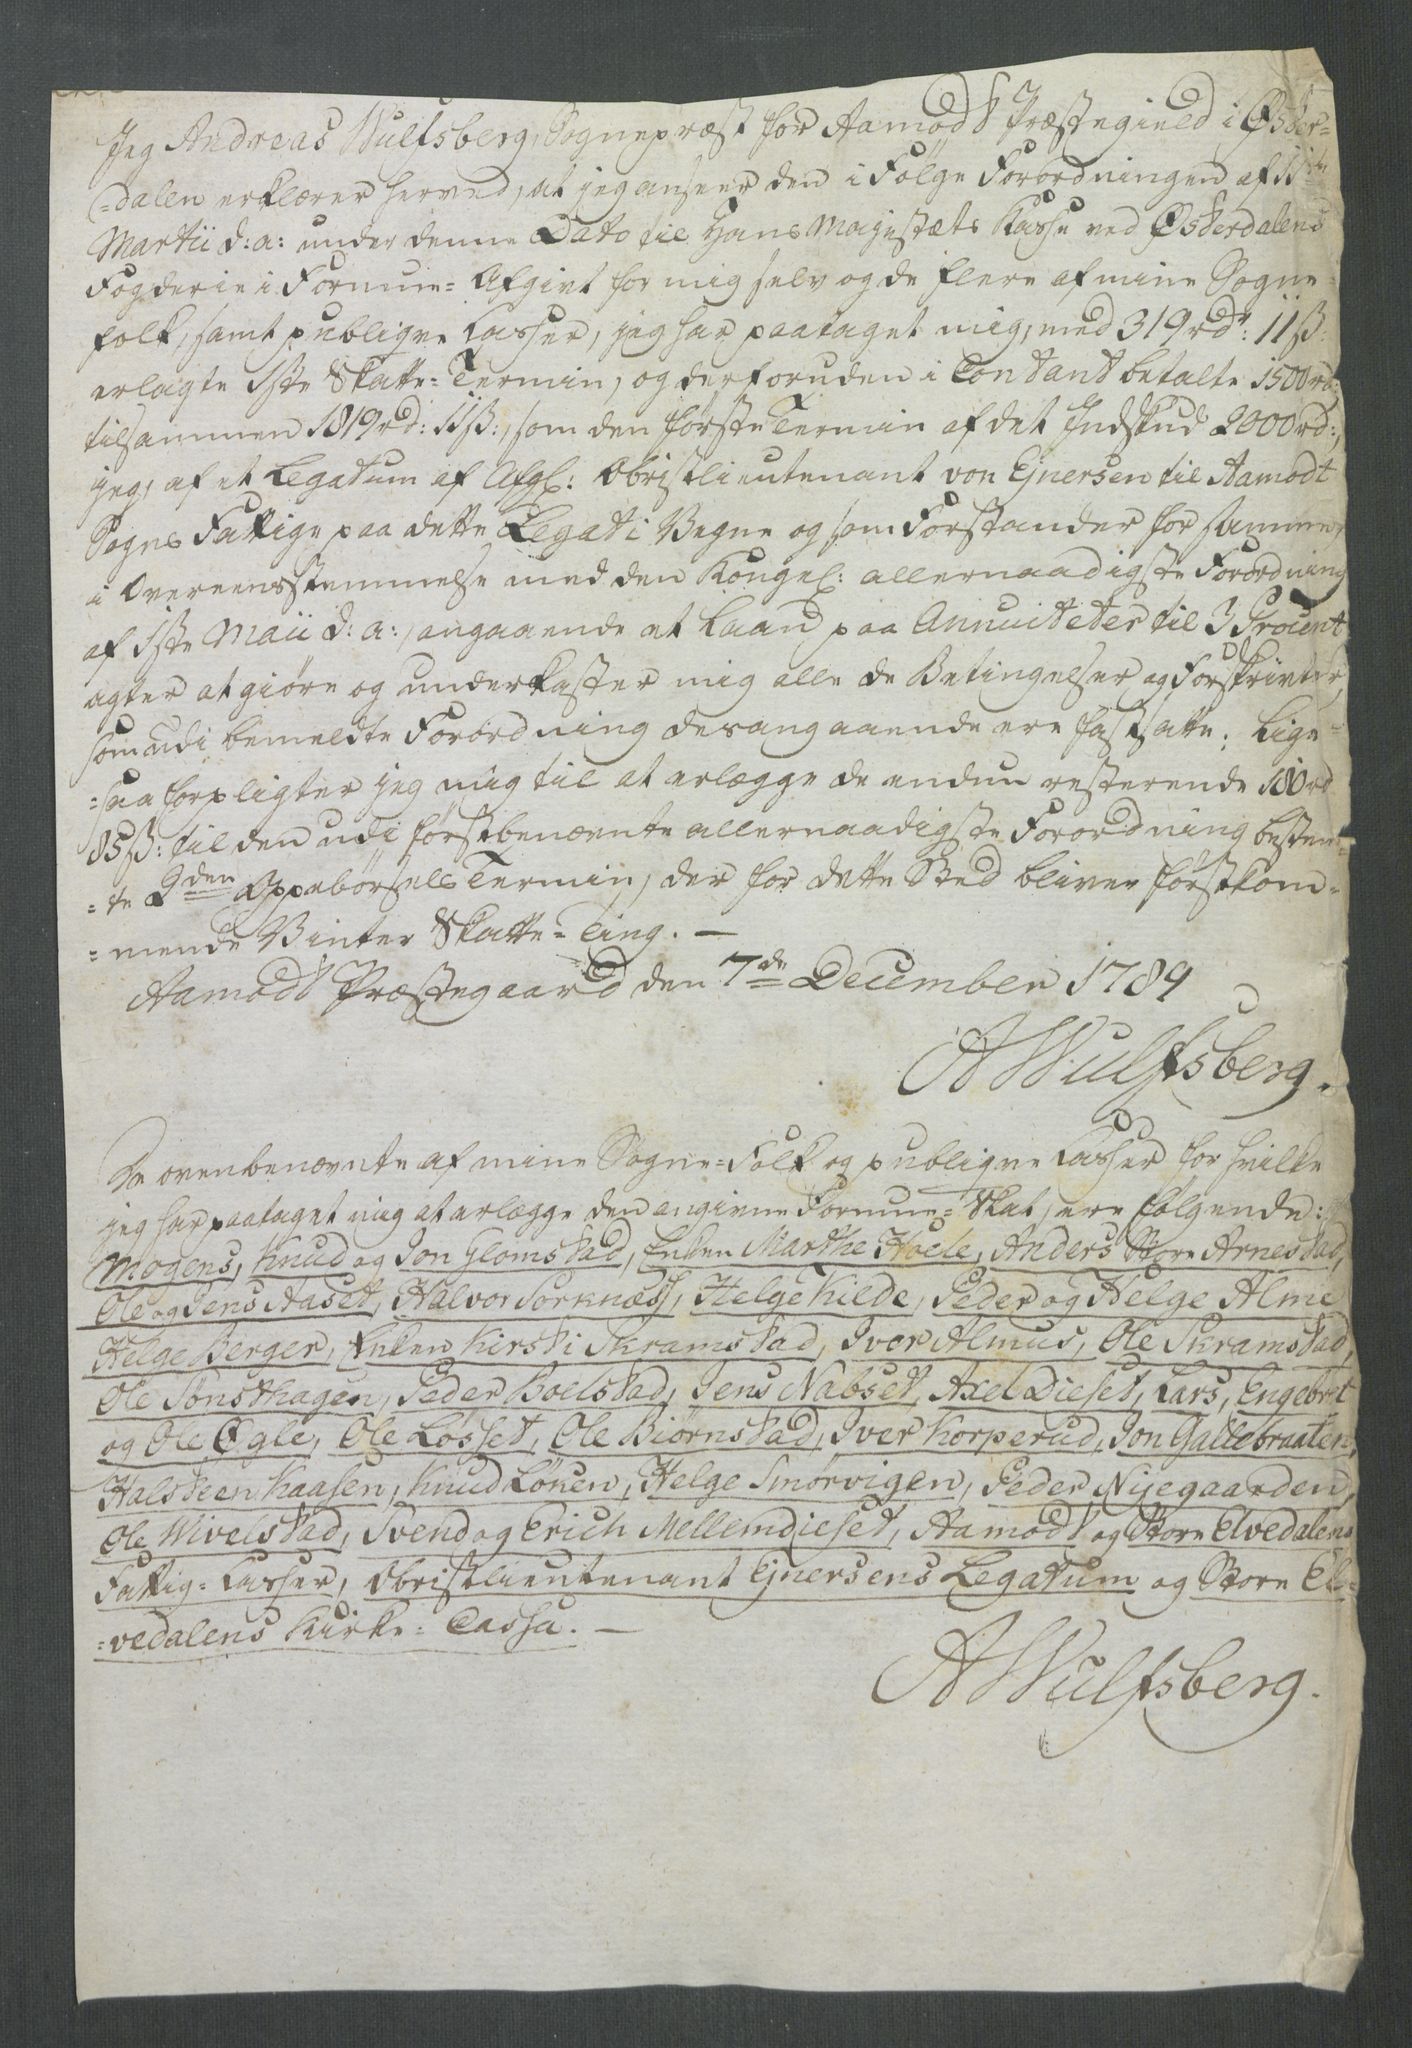 Jeg Andreas Wulfsberg, Sognepræst for Aamodt Præstegield i Øster=
=dalen erklærer herved, at jeg anseer den i Følge Forordningen af 11te
Martii d: a: under denne Dato til Hans Mayestæts Kasse ved Østerdalens
Fogderie i Formue= Afgivt for mig selv og de flere af mine Sogne=
folk, samt publiqve Casser, jeg har paataget mig, med 319 rdr: 11ß:
erlagte 1ste Skatte= Termin, og derforuden i Contant betalte 1500 rd:
tilsammen 1819 rd: 11ß:, som den første Termin af det Indskud 2000 rd:,
jeg, af et Legatum af Afgl: Obristlieutenant von Ejnersen til Aamodt
Sogns Fattige paa dette Legat i Vegne og som Forstander for samme,
i Overeensstemmelse med den Kongel: allernaadigste Forordning
af 1ste Maii d: a:, angaaende et Laan paa Annuiteter til 3 Procent
agter at giøre og underkaster mig alle de Betingelser og Forskrivter,
som udi bemeldte Forordning desangaaende ere fastsatte; Lige=
=saa forpligter jeg mig til at erlægge de endnu resterende 180 rd
85ß: til den udi førstbenævnte allernaadigste Forordning bestem=
=te 2den Oppebørsels Termin, der for dette Sted bliver førstkom=
=mende Vinter Skatte= Ting. —
Aamodt Præstegaard den 7de December 1789
AWulfsberg.
De ovenbenævnte af mine Sogne=Folk og publiqve Casser for hvilke
jeg har paataget mig at erlægge den angivne Formue= Skat, ere følgende:
Mogens, Knud og Jon Glomstad, Enken Marthe Hoele, Anders Store Arnestad,
Ole og Jens Aaset, Halvor Sorknæss, Helge Kilde, Peder og Helge Alme
Helge Berger, Enken Kirsti Skramstad, Iver Almus, Ole Skramstad,
Ole Sønsthagen, Peder Boelstad, Jens Nabset, Axel Dieset, Lars, Engebret
og Ole Øgle, Ole Løsset, Ole Biørnstad, Iver Korperud, Jon Gallebraaten,
Halsteen Kaasen, Knud Løken, Helge Smørvigen, Peder Nijegaarden,
Ole Wivelstad, Svend og Erich Mellemdieset, Aamodt og Store Elvedalens
Fattig= Casser, Obristlieutenant Ejnersens Legatum og Store El=
=vedalens Kirke= Cassa. —
AWulfsberg.